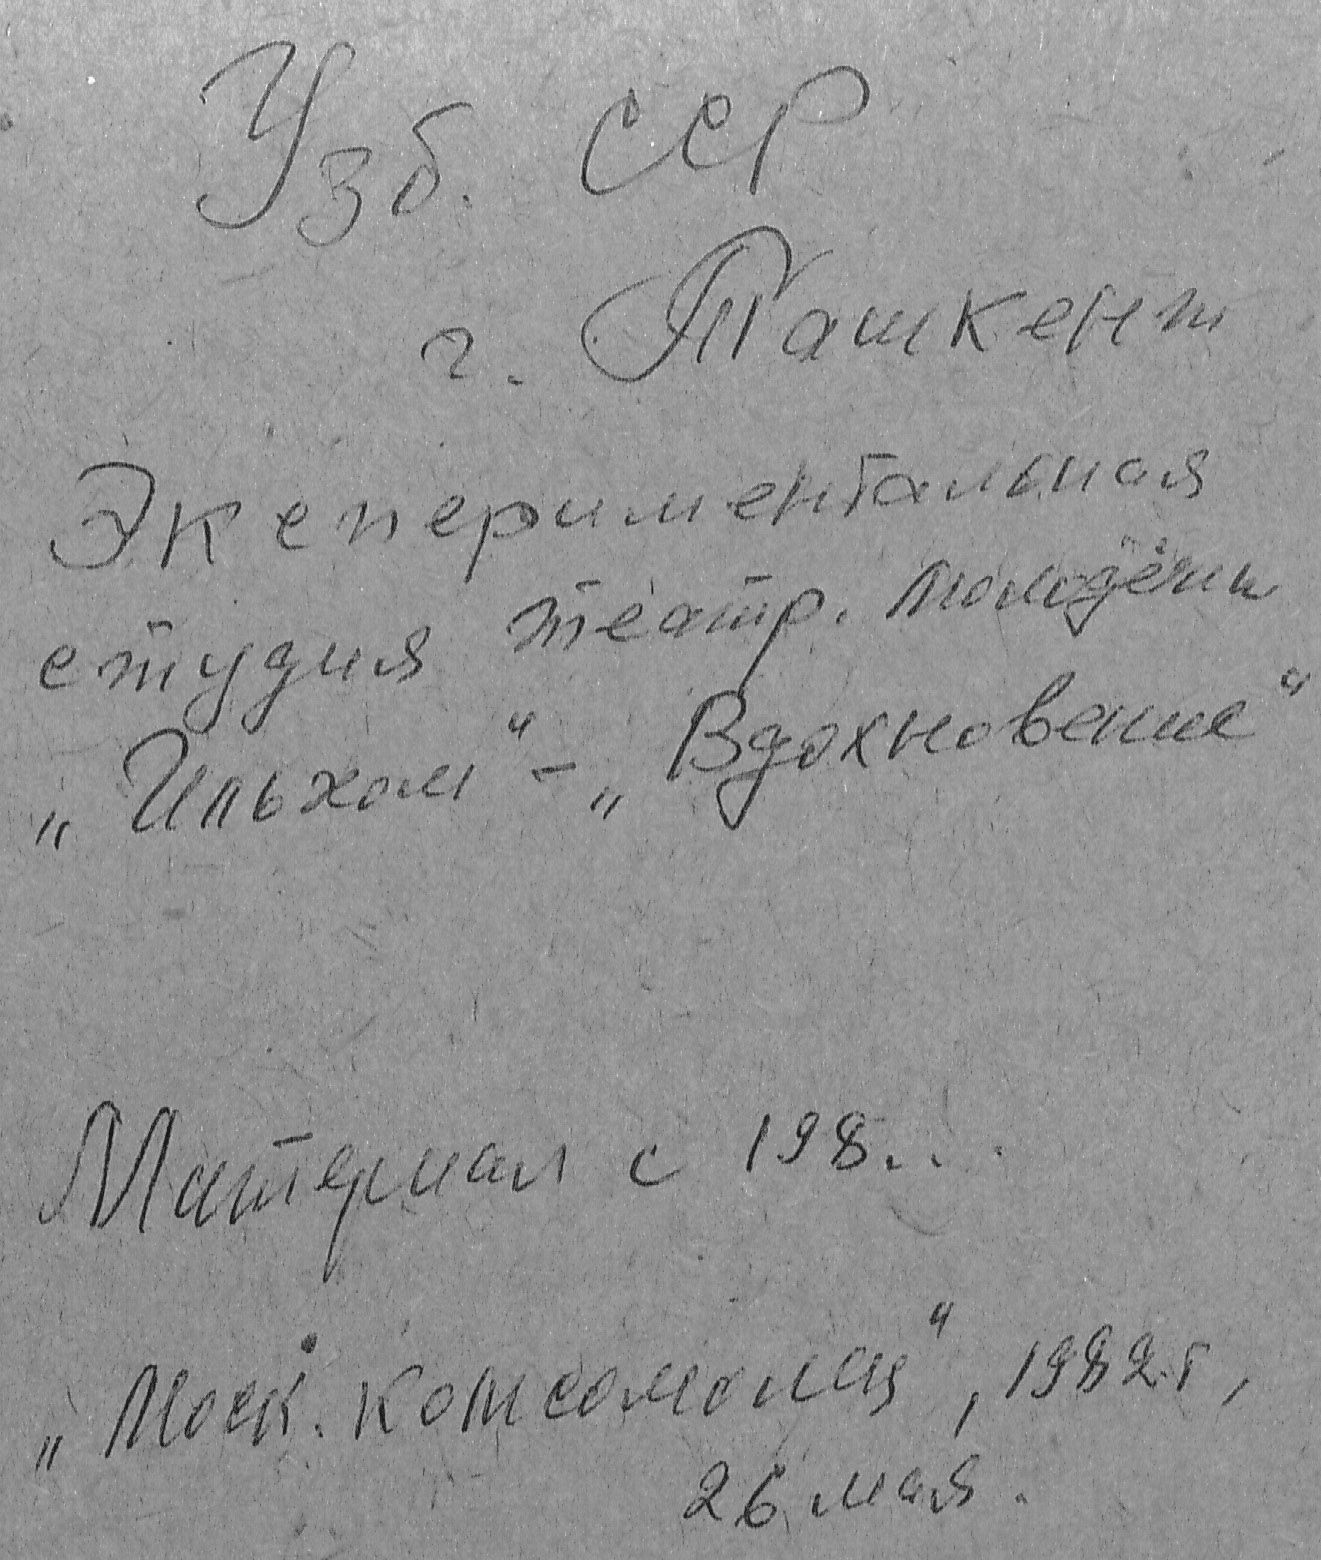 Узб. ССР
г. Ташкент
Экспериментальная
студия театр. молодёжи
„Ильхом“ – „Вдохновение“
Материал с 198...
„Моск. комсомолец“, 1982 г,
26 мая.